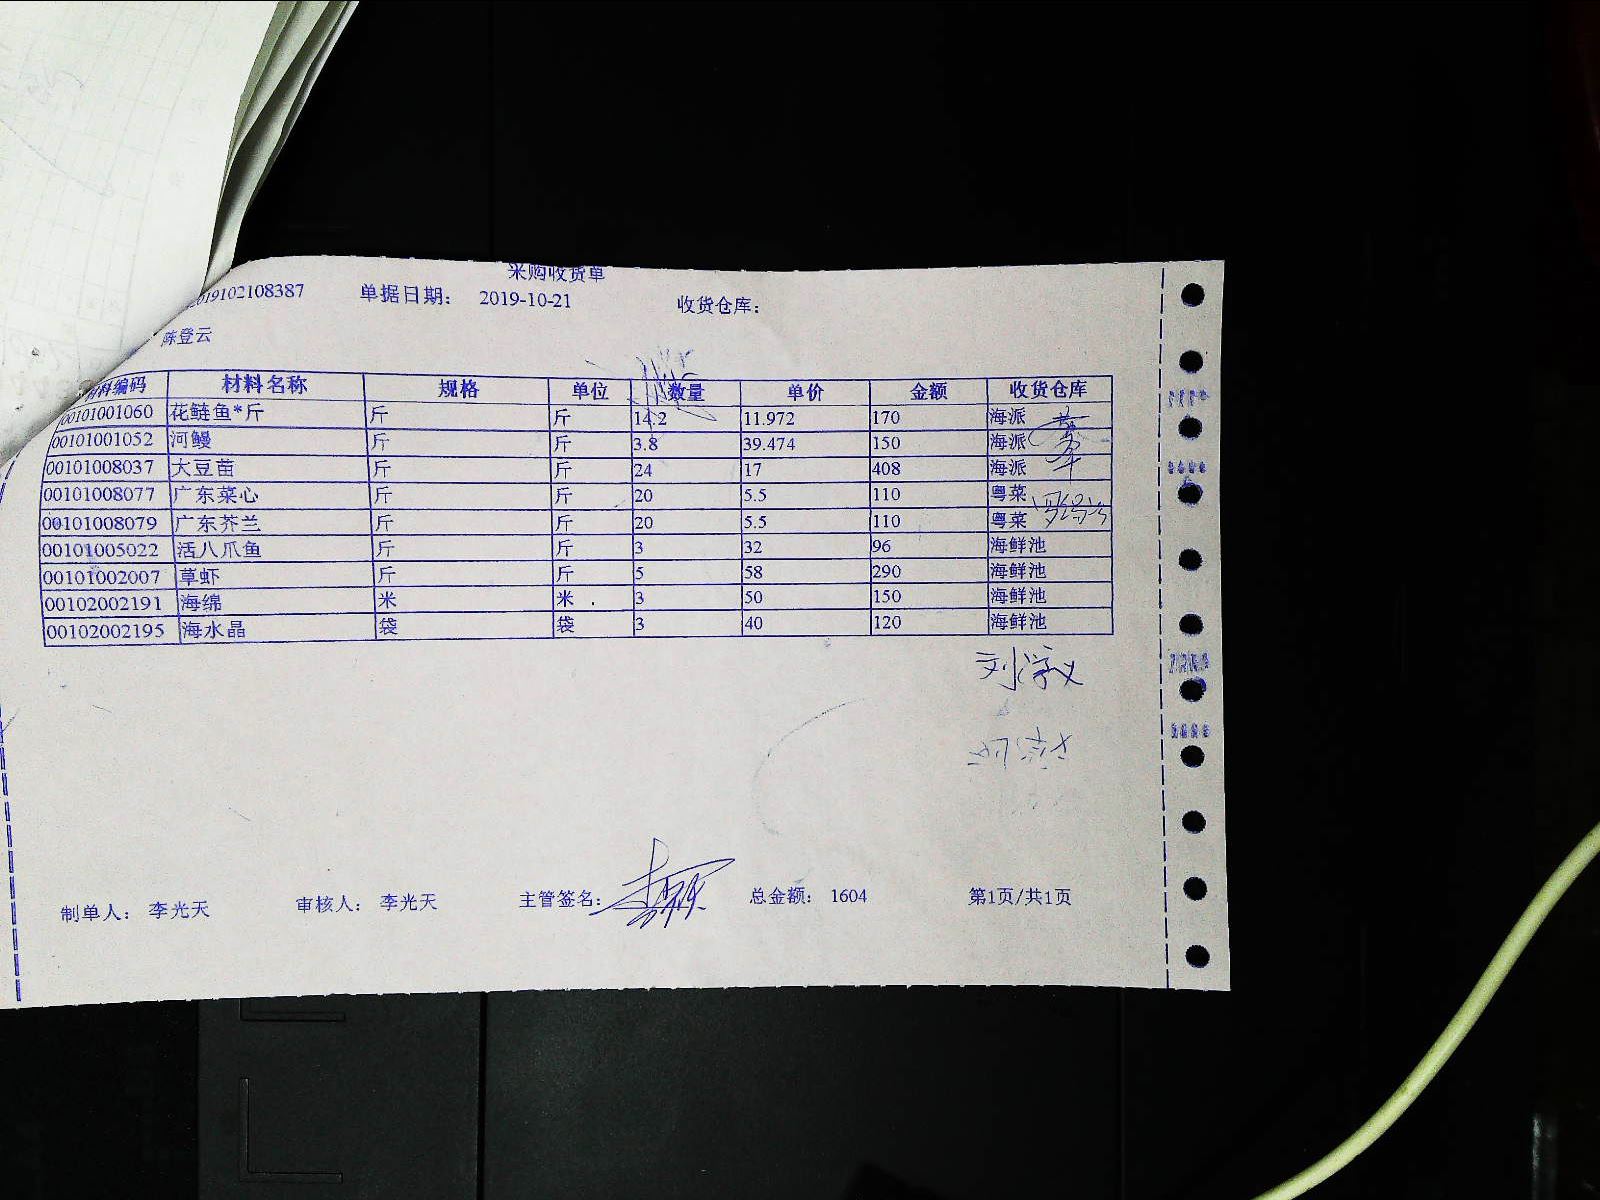 采购收货单
2019102108387 单据日期： 2019-10-21 收货仓库：
陈登云
材料编码 材料名称 规格 单位 数量 单价 金额 收货仓库
00101001060 花鲢鱼*斤 斤 斤 14.2 11.972 170 海派
00101001052 河鳗 斤 斤 3.8 39.474 150 海派
00101008037 大豆苗 斤 斤 24 17 408 海派
00101008077 广东菜心 斤 斤 20 5.5 110 粤菜
00101008079 广东芥兰 斤 斤 20 5.5 110 粤菜
00101005022 活八爪鱼 斤 斤 3 32 96 海鲜池
00101002007 草虾 斤 斤 5 58 290 海鲜池
00102002191 海绵 米 米 3 50 150 海鲜池
00102002195 海水晶 袋 袋 3 40 120 海鲜池
刘学义
制单人： 李光天 审核人： 李光天 主管签名： 总金额： 1604 第1页/共1页